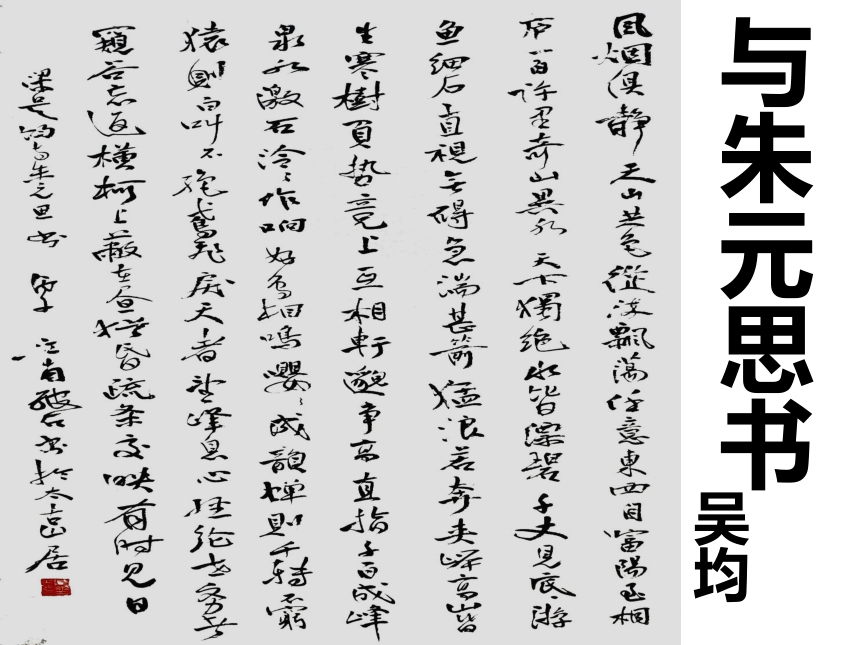 与朱元思书
吴均
风烟俱静天山共色從流飘蕩任意東西自富陽至桐
庐一百许里奇山異水天下獨绝水皆漂碧千丈見底游
鱼细石直視无碍急湍甚箭猛浪若奔夹峰高山皆
生寒樹負势竞上互相軒邈争高直指千百成峰
泉水激石泠泠作响好鸟相鳴嚶嚶成韻蝉則千轉不窮
猿則百叫不绝鸢飛戾天者望峰息心经纶世务者
窥谷忘返横柯上蔽在昼犹昏疏条交映有时見日
梁吴均与朱元思书 书於太 居